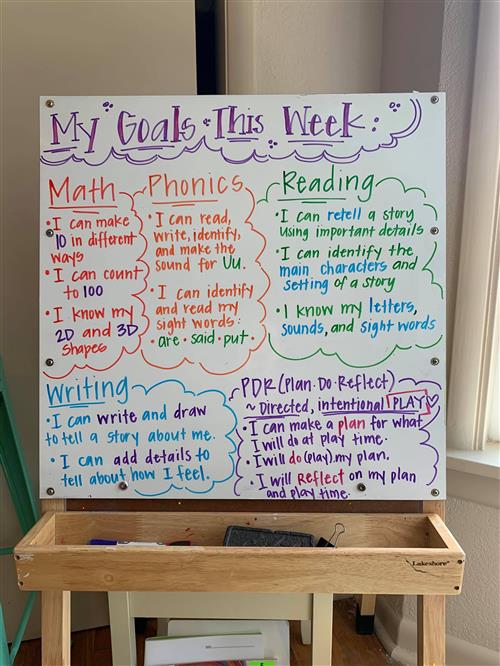 My Goals This Week:
Math
• I can make
10 in different
ways
• I can count
to 100
• I know my
2D and 3D
shapes
Phonics
• I can read,
write, identify,
and make the
sound for Uu.
• I can identify
and read my
sight words:
• are • said • put •
Reading
• I can retell a story
using important details
• I can identify the
main characters and
setting of a story
• I know my letters,
sounds, and sight words
Writing
• I can write and draw
to tell a story about me.
• I can add details to
tell about how I feel.
PDR (Plan • Do • Reflect)
~ Directed, intentional PLAY
• I can make a plan for what
I will do at play time.
• I will do (play) my plan.
• I will Reflect on my plan
and play time.
Lakeshore